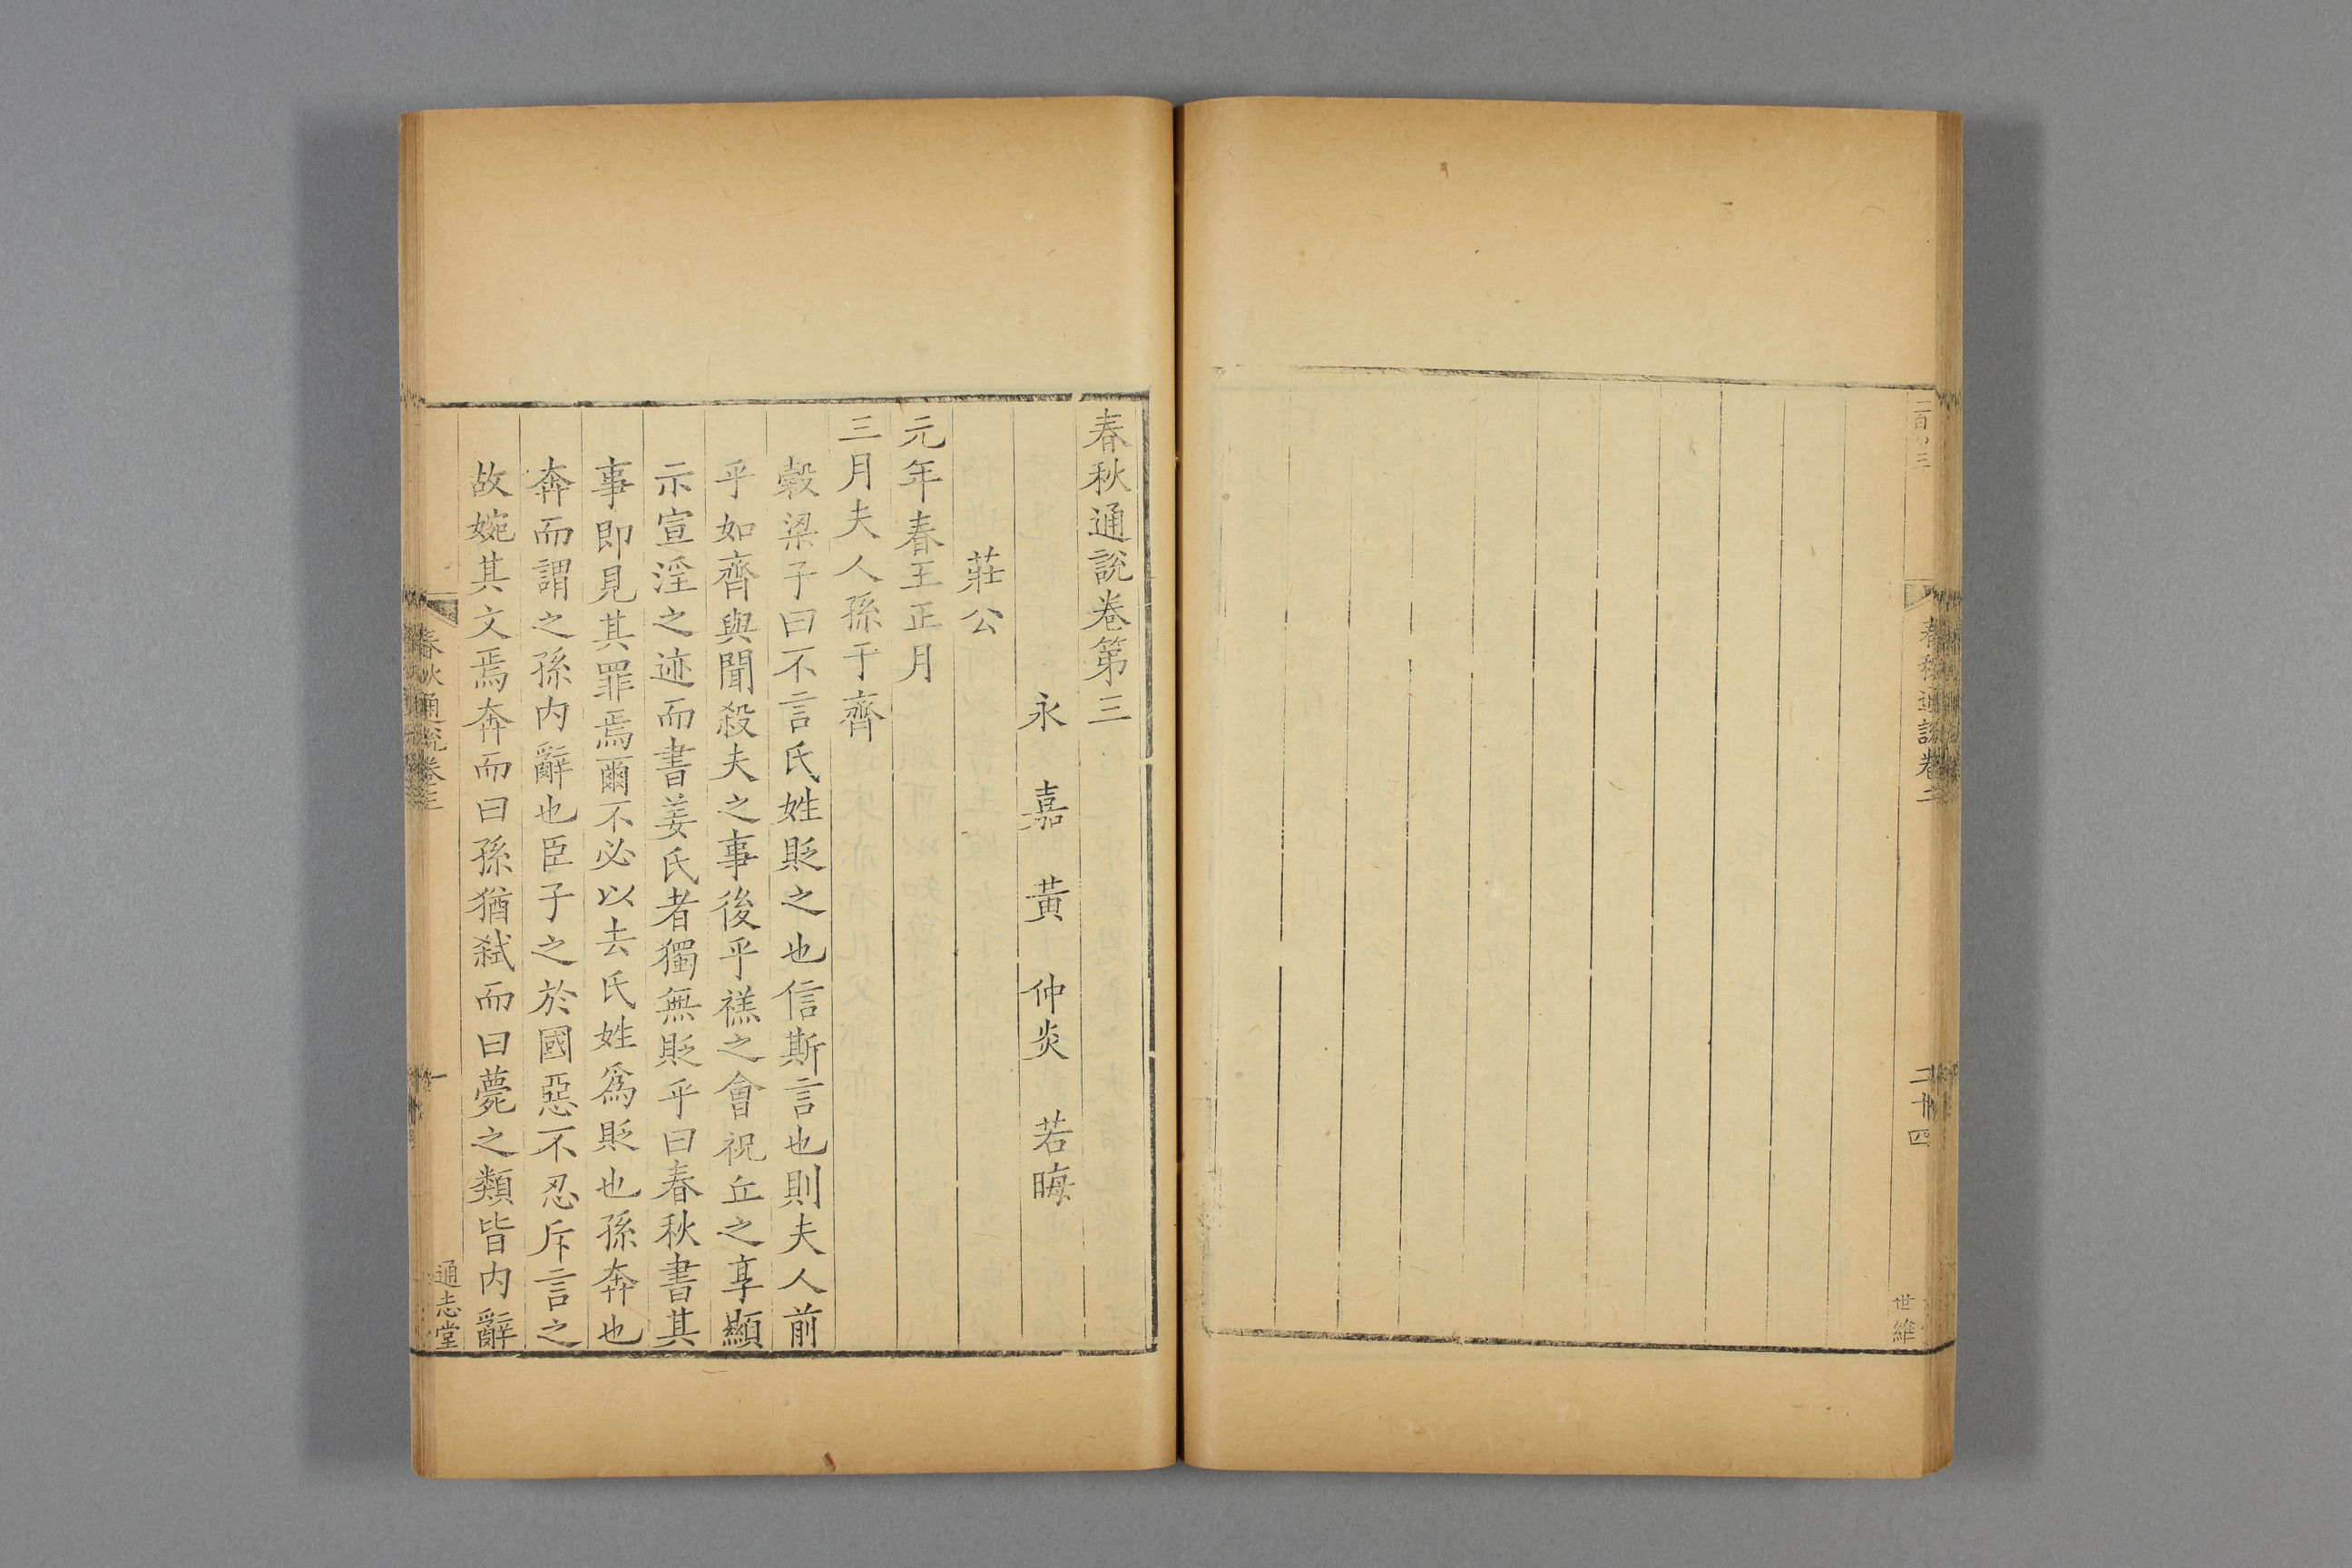 春秋通說卷二
二十四
世維
春秋通說卷第三
永嘉黃仲炎若晦
莊公
元年春王正月
三月夫人孫于齊
穀梁子曰不言氏姓貶之也信斯言也則夫人前
乎如齊與聞殺夫之事後乎禚之會祝丘之享顯
示宣淫之迹而書姜氏者獨無貶乎曰春秋書其
事即見其罪焉爾不必以去氏姓爲貶也孫奔也
奔而謂之孫内辭也臣子之於國惡不忍斥言之
故婉其文焉奔而曰孫猶弑而曰薨之類皆内辭
春秋通說卷三
一
通志堂